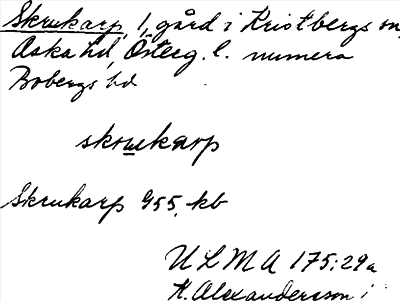 Skrukarp, 1, gård i Kristbergs sn,
Aska hd, Österg. l. numera
Bobergs hd
skrukarp
Skrukarp 955, kb
ULMA 175:29a
K. Alexandersson i